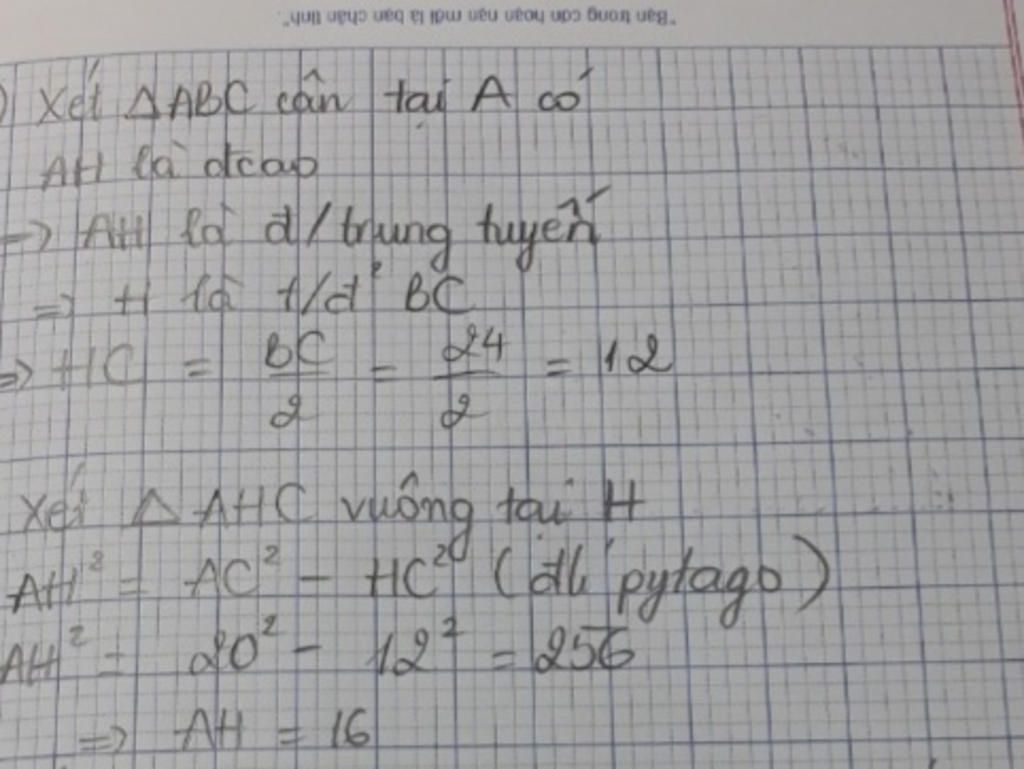 "Bạn trong cơn hoạn nạn mới là bạn chân tình".
) Xét ΔABC cân tại A có
AH là đcao
=> AH là đ/trung tuyến
=> H là t/đ² BC
=> HC = BC/2 = 24/2 = 12
Xét Δ AHC vuông tại H
AH² = AC² - HC² (đlí pytago)
AH² = 20² - 12² = 256
=> AH = 16